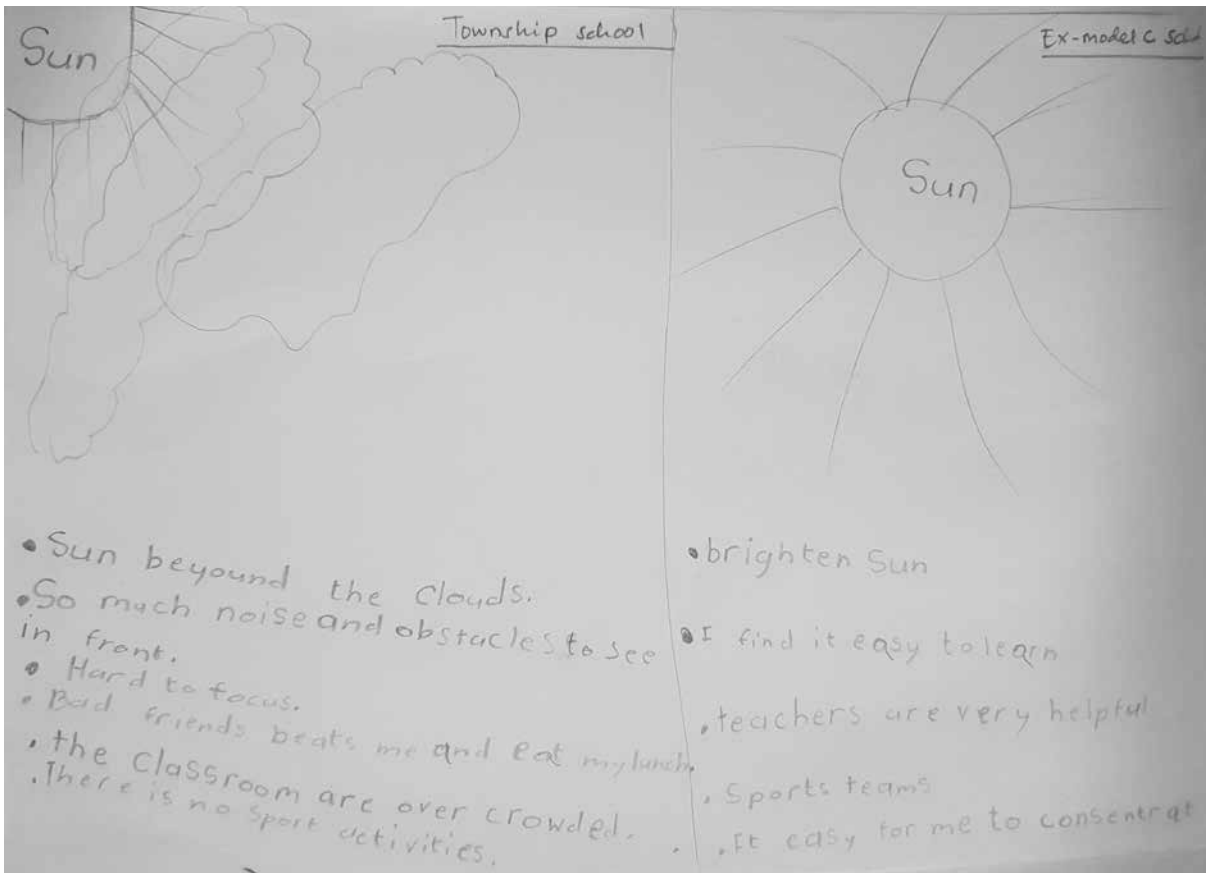 Township school
Sun
• Sun beyound the clouds.
• So much noise and obstacles to see
in front.
• Hard to focus.
• Bad friends beats me and eat my lunch.
• the classroom are over crowded.
• There is no sport activities.
Ex-model C
Sun
• brighten Sun
• I find it easy to learn
• teachers are very helpful
• Sports teams
• It easy for me to consentrat